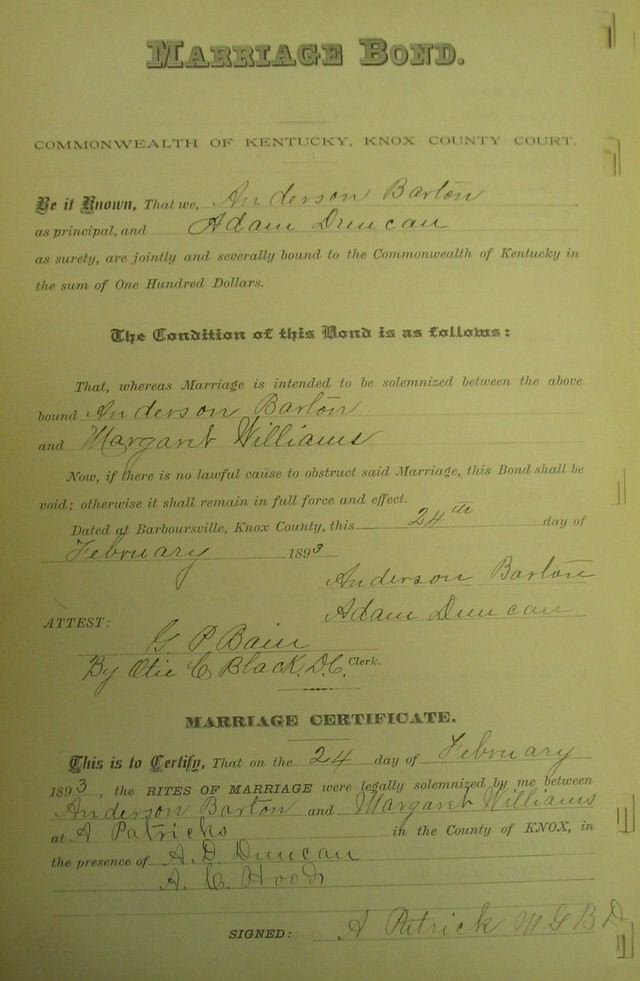 MARRIAGE BOND.
COMMONWEALTH OF KENTUCKY, KNOX COUNTY COURT.
Be it Known, That we, Anderson Barton
as principal, and Adam Duncan
as surety, are jointly and severally bound to the Commonwealth of Kentucky in
the sum of One Hundred Dollars.
The Condition of this Bond is as follows:
That, whereas Marriage is intended to be solemnized between the above
bound Anderson Barton
and Margaret Williams
Now, if there is no lawful cause to obstruct said Marriage, this Bond shall be
void; otherwise it shall remain in full force and effect.
Dated at Barboursville, Knox County, this 24th day of
February 1893
Anderson Barton
Adam Duncan
ATTEST:
G. P. Bain
By Otie C Black, D.C. Clerk.
MARRIAGE CERTIFICATE.
This is to Certify, That on the 24 day of February
1893, the RITES OF MARRIAGE were legally solemnized by me between
Anderson Barton and Margaret Williams
at A Patricks in the County of KNOX, in
the presence of A. D. Duncan
A. C. Hood
SIGNED: A Patrick M G B D